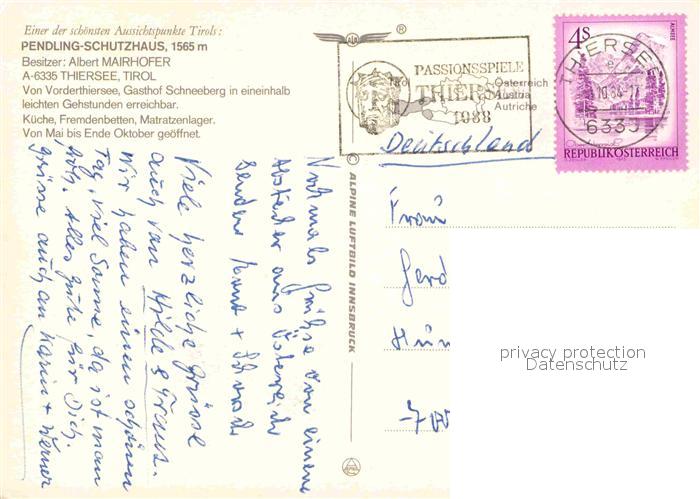 Einer der schönsten Aussichtspunkte Tirols:
PENDLING-SCHUTZHAUS, 1565 m
Besitzer: Albert MAIRHOFER
A-6335 THIERSEE, TIROL
Von Vorderthiersee, Gasthof Schneeberg in eineinhalb
leichten Gehstunden erreichbar.
Küche, Fremdenbetten, Matratzenlager.
Von Mai bis Ende Oktober geöffnet.
®
PASSIONSSPIELE
THIERS
1988
Österreich
Austria
Autriche
THIERSEE
6335
4S
REPUBLIK ÖSTERREICH
Deutschland
© ALPINE LUFTBILD INNSBRUCK
Nochmals Grüsse von einem
aus Österreich
senden
Viele herzliche Grüsse
auch von Hilde & Franz.
Wir haben einen schönen
Tag, viel Sonne, da ist man
Alles Gute für Dich.
Grüsse auch an Karin + Werner
Frau
Gerd
Hün
privacy protection
Datenschutz